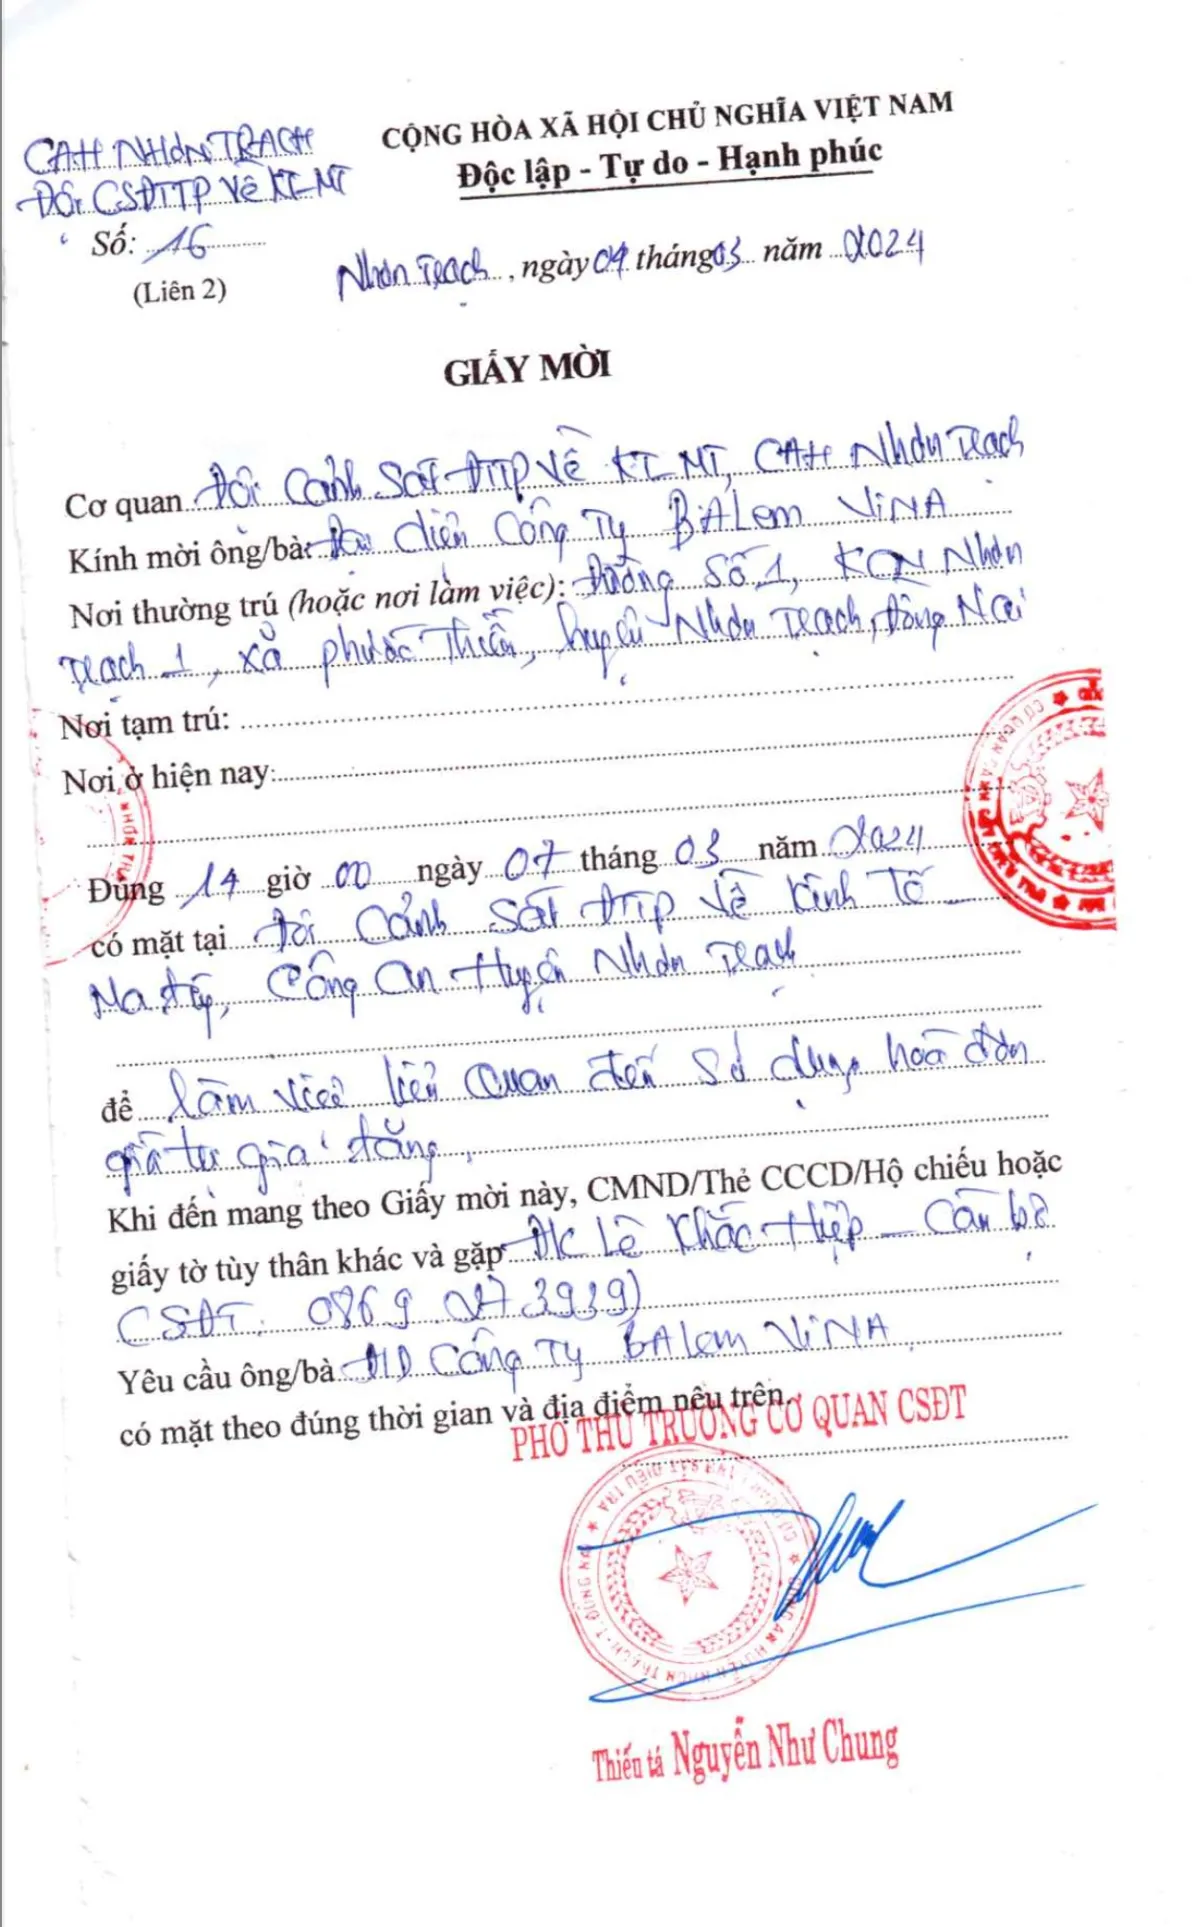 CAH NHƠN TRẠCH
Đội CSĐTTP Về KT-MT
CỘNG HÒA XÃ HỘI CHỦ NGHĨA VIỆT NAM
Độc lập - Tự do - Hạnh phúc
Số: 16
(Liên 2)
Nhơn Trạch, ngày 04 tháng 03 năm 2024
GIẤY MỜI
Cơ quan Đội Cảnh Sát ĐTTP Về KT-MT, CAH Nhơn Trạch
Kính mời ông/bà: Đại diện Công Ty BALem ViNA
Nơi thường trú (hoặc nơi làm việc): Đường Số 1, KCN Nhơn
Trạch 1, xã Phước Thiền, huyện Nhơn Trạch, Đồng Nai
Nơi tạm trú:
Nơi ở hiện nay:
Đúng 14 giờ 00 ngày 07 tháng 03 năm 2024
có mặt tại Đội Cảnh Sát ĐTTP Về Kinh Tế
Ma túy, Công An Huyện Nhơn Trạch
để làm việc liên quan đến sử dụng hoá đơn
giá trị gia tăng.
Khi đến mang theo Giấy mời này, CMND/Thẻ CCCD/Hộ chiếu hoặc
giấy tờ tùy thân khác và gặp Đ/C Lê Khắc Hiệp - Cán bộ
CSĐT. 0869 273939)
Yêu cầu ông/bà ĐD Công Ty BALem ViNA
có mặt theo đúng thời gian và địa điểm nêu trên.
PHÓ THỦ TRƯỞNG CƠ QUAN CSĐT
Thiếu tá Nguyễn Như Chung